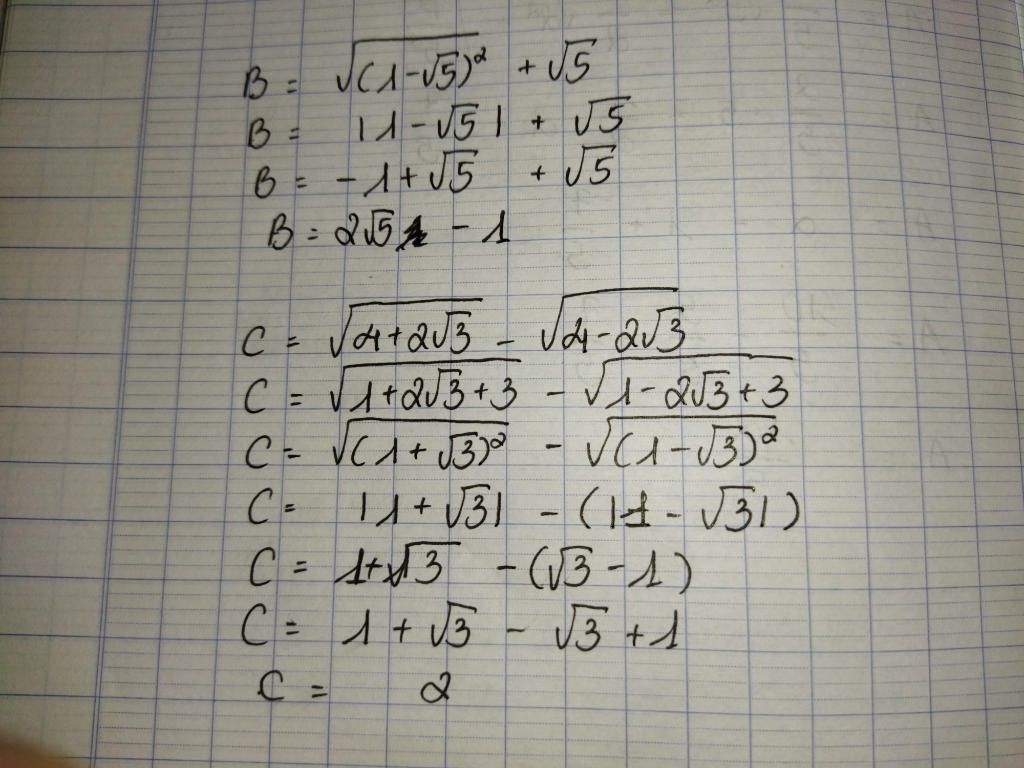 B = √(1-√5)² + √5
B = |1-√5| + √5
B = -1+√5 + √5
B = 2√5 - 1
C = √4+2√3 - √4-2√3
C = √1+2√3+3 - √1-2√3+3
C = √(1+√3)² - √(1-√3)²
C = |1+√3| - (|1-√3|)
C = 1+√3 - (√3-1)
C = 1+√3 - √3 +1
C = 2